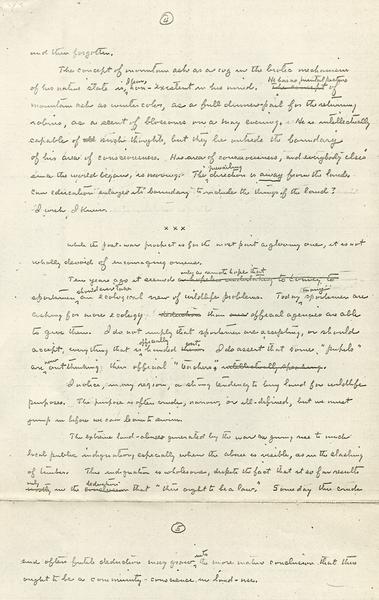 4
and then forgotten.
The concept of mountain ash as a cog in the biotic mechanism
of his native state is, I fear, non-existent in his mind. He has no mental picture of
mountain ash as winter color, as a full dinner-pail for the
robins, as a scent of blossoms on a May evening. He is intellectually
capable of such thoughts, but they lie outside the boundary
of his area of consciousness. His area of consciousness, and everybody else's
since the world began, is moving. The prevailing direction is away from the land.
Can education enlarge its boundary to include the things of the land?
I wish I knew.
x x x
While the post-war prospect is for the most part a gloomy one, it is not
wholly devoid of encouraging omens.
Ten years ago it seemed only a remote hope that
sportsmen should ever take an ecological view of wildlife problems. Today, sportsmen are
asking for more ecology than official agencies are able
to give them. I do not imply that sportsmen are accepting, or should
accept, everything that is officially handed out. I do assert that some "pupils"
are now out-thinking their official "teachers".
I notice, in my region, a strong tendency to buy land for wildlife
purposes. The purpose is often crude, narrow, or ill-defined, but we must
jump in before we can learn to swim.
The extreme land-abuses generated by the war are giving rise to much
local public indignation, especially when the abuse is visible, as in the slashing
of timber. This indignation is wholesome, despite the fact that it so far results
only in the deduction that "there ought to be a law." Some day this crude
5
and often futile deduction may grow into the more mature conclusion that there
ought to be a community-conscience in land-use.